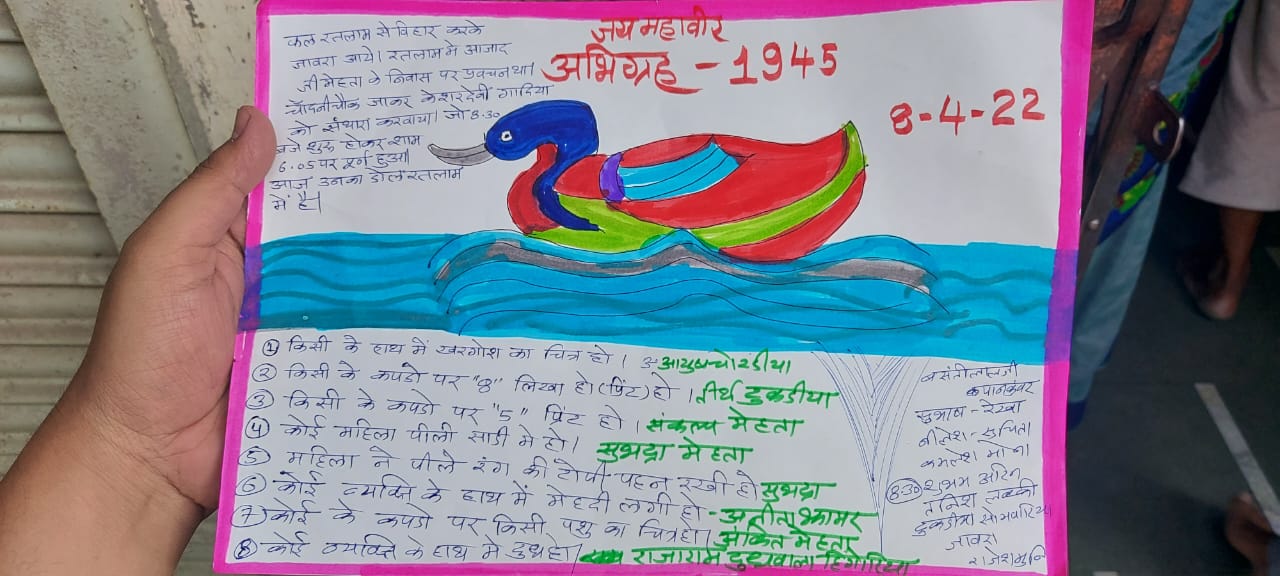 कल रतलाम से विहार करके
जावरा आये। रतलाम मे आजाद
जी मेहता के निवास पर प्रवचन था।
चाँदनीचौक जाकर केशरदेवी गादिया
को संथारा करवाया। जो 8.30
बजे शुरू होकर शाम
6.05 पर पूर्ण हुआ।
आज उनका डोल रतलाम
में है।
जय महावीर
अभिग्रह - 1945
8-4-22
① किसी के हाथ में खरगोश का चित्र हो। आयुष चोरडीया
② किसी के कपडो पर "8" लिखा हो (प्रिंट) हो। तीर्थ दुकडीया
③ किसी के कपडो पर "5" प्रिंट हो। संकल्प मेहता
④ कोई महिला पीली साडी मे हो। सुभद्रा मेहता
⑤ महिला ने पीले रंग की टोपी पहन रखी हो सुभद्रा
⑥ कोई व्यक्ति के हाथ में मेहदी लगी हो -
⑦ कोई के कपडो पर किसी पशु का चित्र हो। अंकित मेहता
⑧ कोई व्यक्ति के हाथ मे दुध हो। राजाराम दुधवाला
बसंतीलालजी
सुभाष - रेखा
नीलेश - सुचिता
कमलेश
8:30 शुभम
दुकडीया
जावरा
राजेशमुनि